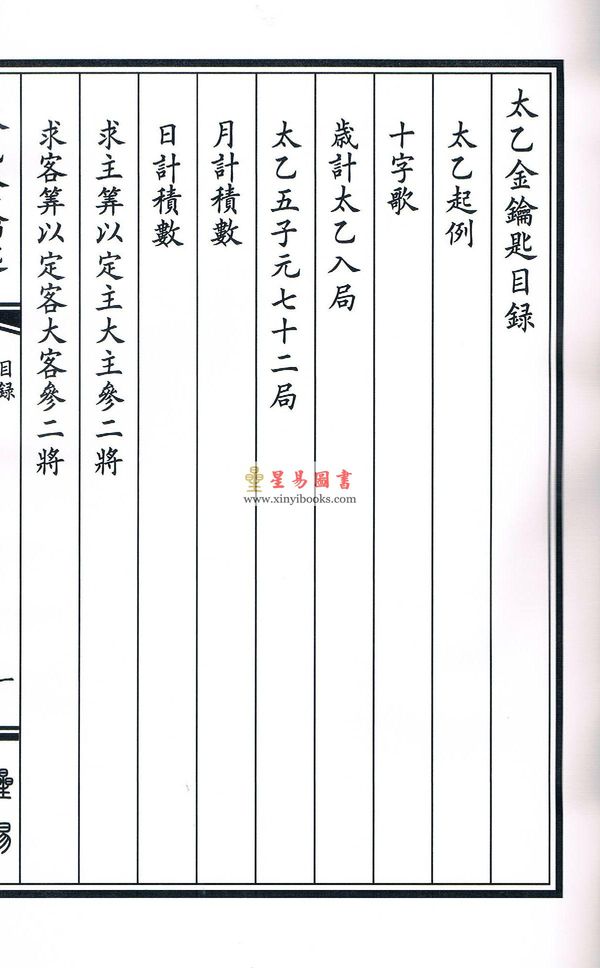 太乙金鑰匙目録
太乙起例
十字歌
歲計太乙入局
太乙五子元七十二局
月計積數
日計積數
求主筭以定主大主參二將
求客筭以定客大客參二將
目録
一
星易
星易圖書
www.xinyibooks.com